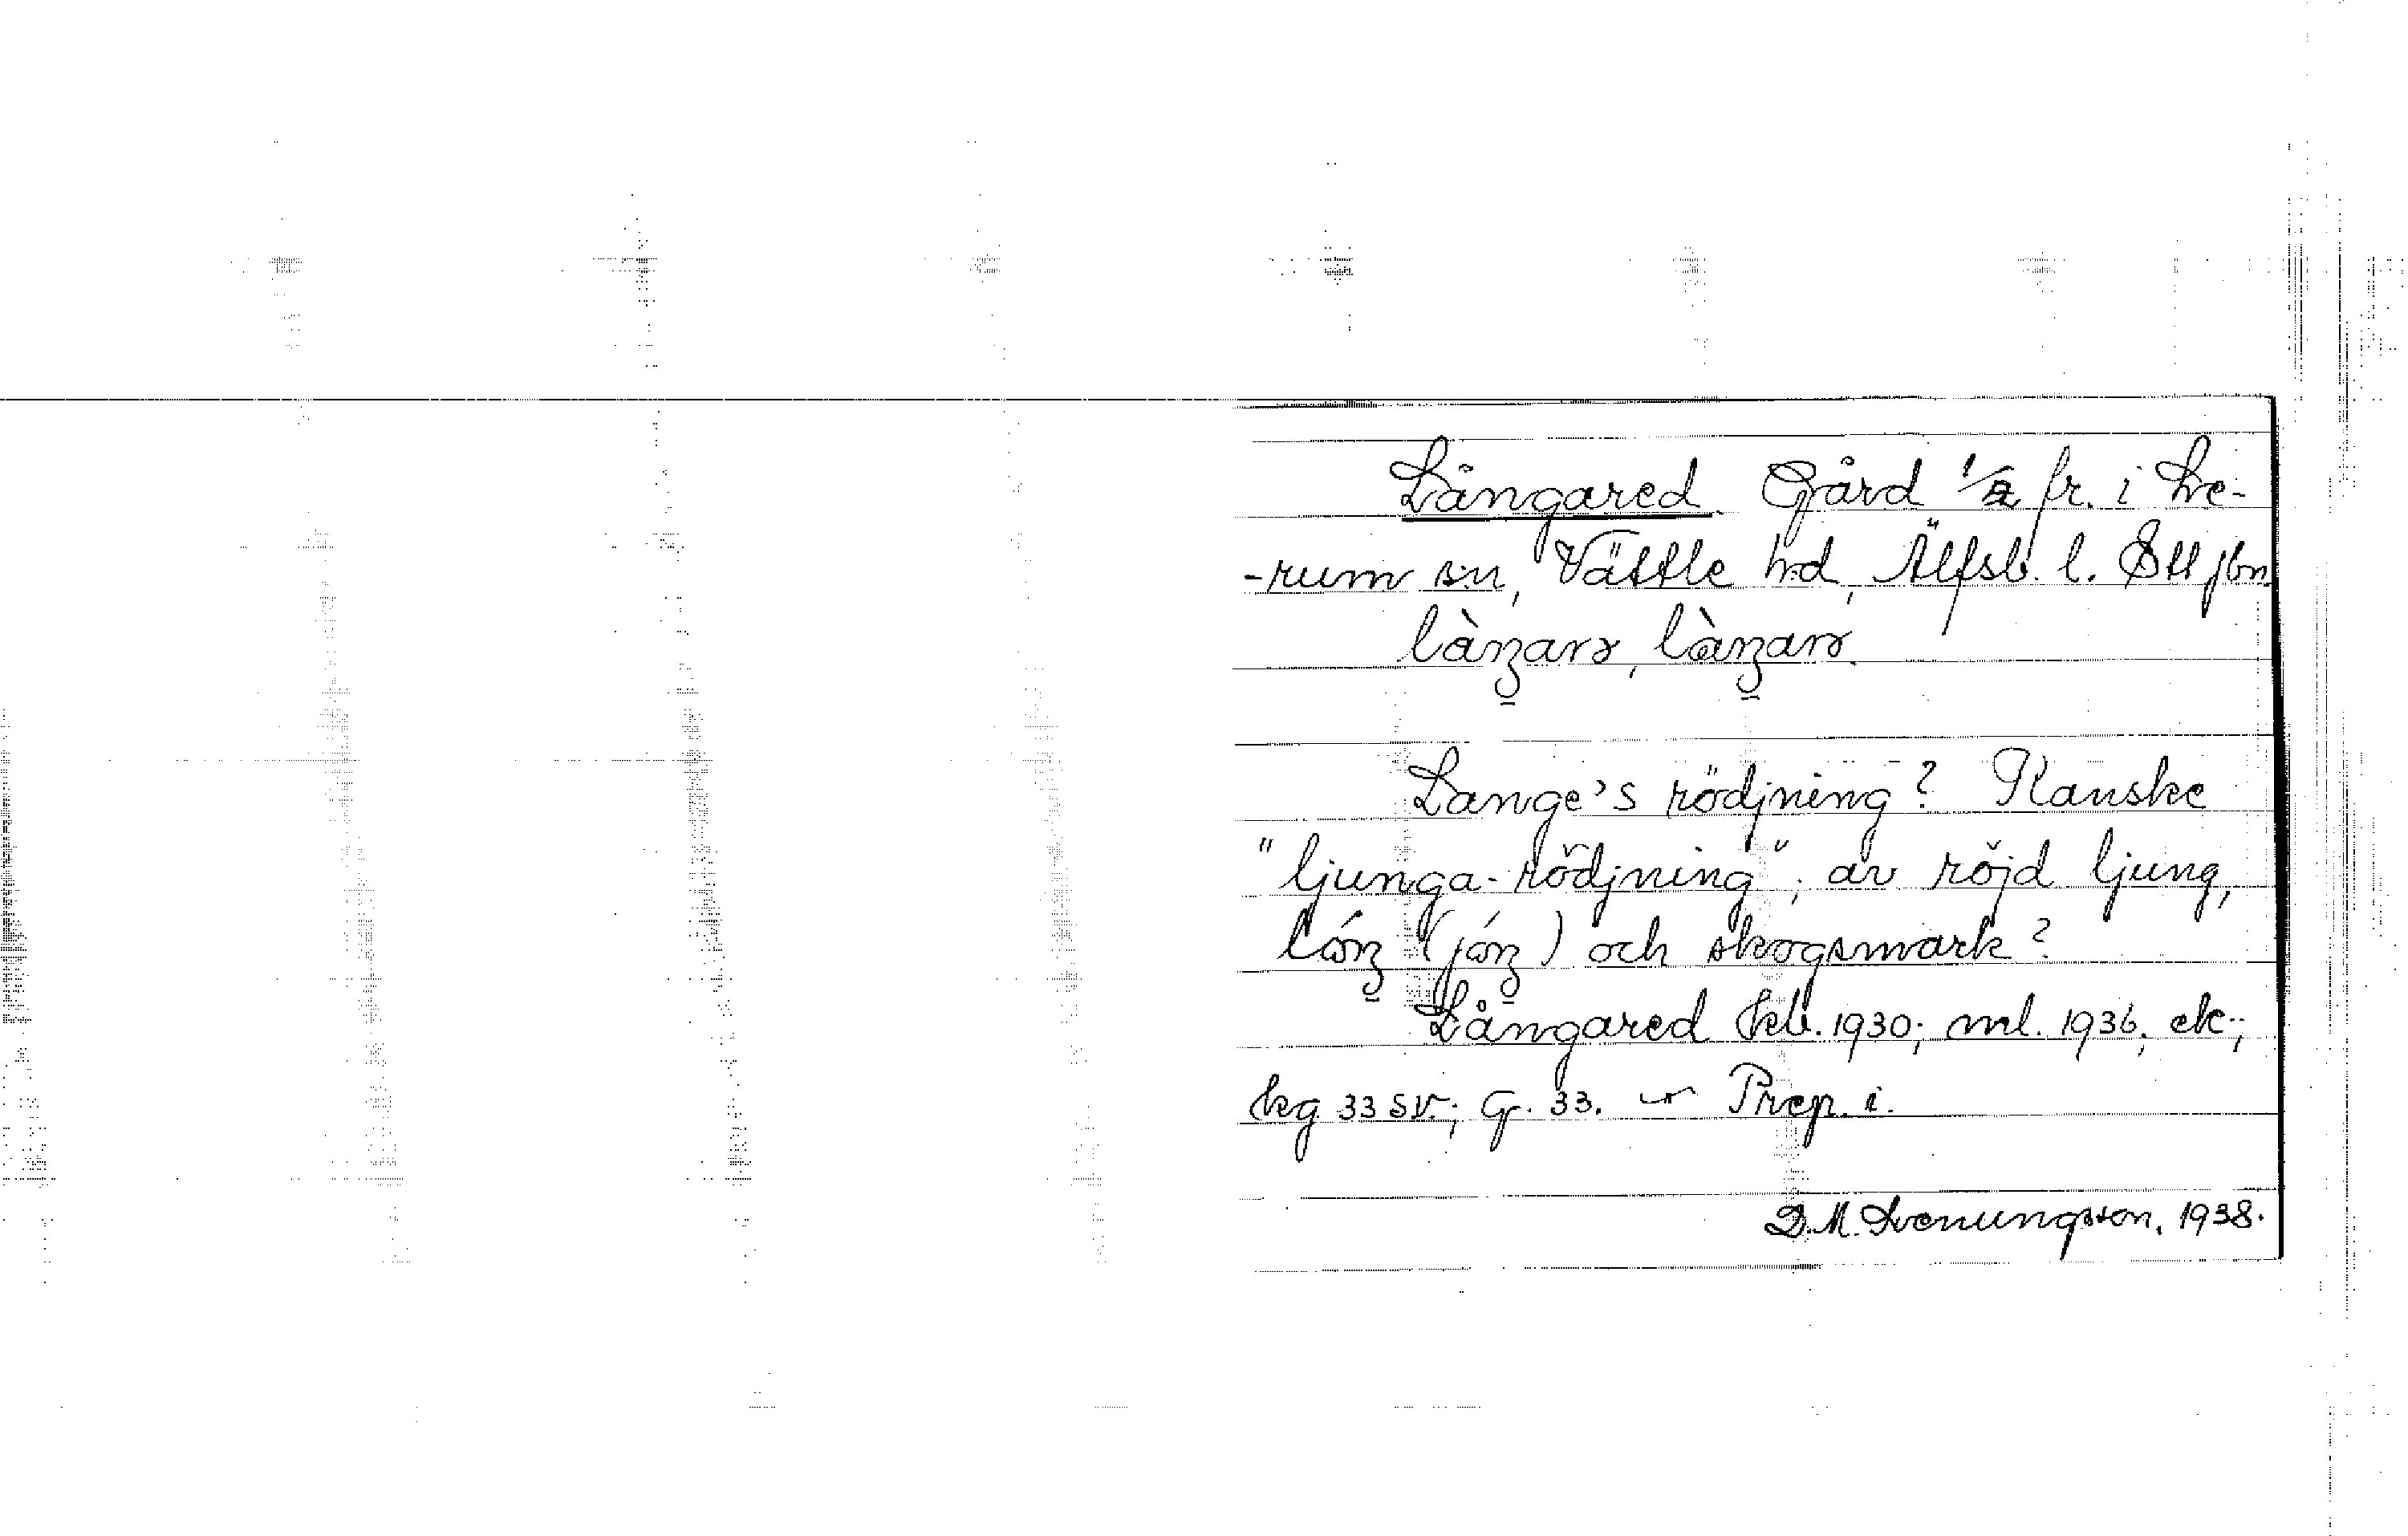 Långared. Gård 1/2 fr. i Le-
-rum sn, Vättle hd, Älfsb. l. Ett jbn
Lange's rödjning? Kanske
"ljunga-rödjning", av röjd ljung,
och skogsmark?
Långared kb. 1930; ml. 1936, ek.;
kg 33 SV.; G. 33. ~ Prep. i.
D. M. Svenungsson, 1938.